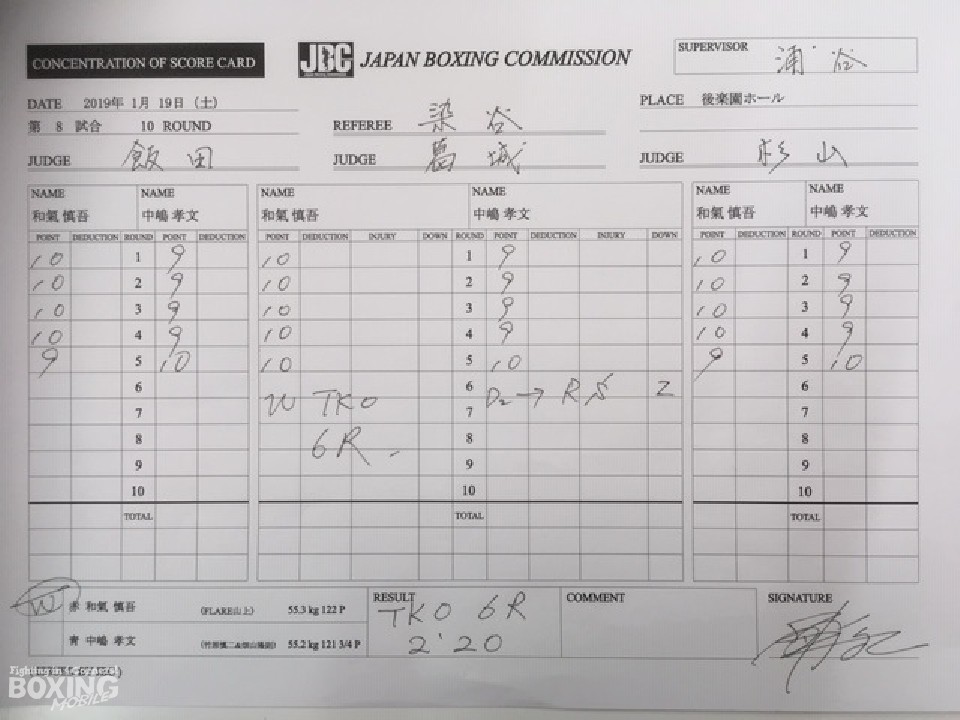 CONCENTRATION OF SCORE CARD
JBC JAPAN BOXING COMMISSION
SUPERVISOR 浦谷
DATE 2019年 1月 19日 (土)
PLACE 後楽園ホール
第 8 試合 10 ROUND
REFEREE 染谷
JUDGE 飯田 JUDGE 葛城 JUDGE 杉山
NAME NAME NAME NAME NAME NAME
和氣 慎吾 中嶋 孝文 和氣 慎吾 中嶋 孝文 和氣 慎吾 中嶋 孝文
POINT DEDUCTION ROUND POINT DEDUCTION POINT DEDUCTION INJURY DOWN ROUND POINT DEDUCTION INJURY DOWN POINT DEDUCTION ROUND POINT DEDUCTION
10 1 9 10 1 9 10 1 9
10 2 9 10 2 9 10 2 9
10 3 9 10 3 9 10 3 9
10 4 9 10 4 9 10 4 9
9 5 10 10 5 10 9 5 10
6 6 2 6
7 W TKO 7 7
8 6R 8 8
9 9 9
10 10 10
TOTAL TOTAL TOTAL
W 赤 和氣 慎吾 (FLARE山上) 55.3 kg 122 P
青 中嶋 孝文 55.2 kg 121 3/4 P
RESULT TKO 6R
2'20
COMMENT
SIGNATURE
BOXING
MOBILE